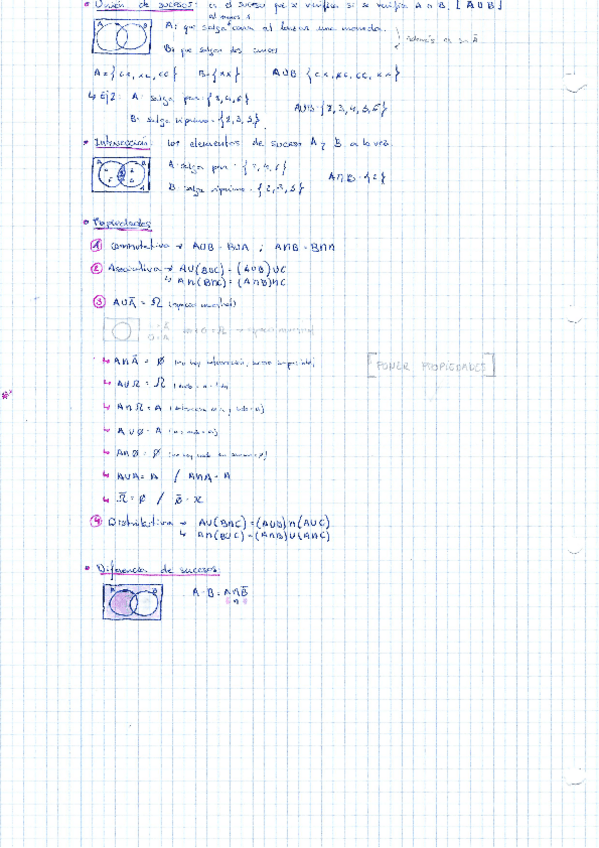 • Unión de sucesos: es el suceso que se verifica si se verifica A o B. [A∪B]
al menos 1
A: que salga cara al lanzar una moneda.
B: que salgan dos cruces
A={cx, xc, cc} B={xx} A∪B {cx, xc, cc, xx}
↳ Ej2: A: salga par: {2,4,6}
A∪B {2,3,4,5,6}
B: salga nºprimo: {2,3,5}
• Intersección: los elementos de suceso A y B a la vez.
A: salga par: {2,4,6}
B: salga nºprimo: {2,3,5}
A∩B={2}
• Propiedades
1 Conmutativa → A∪B = B∪A ; A∩B = B∩A
2 Asociativa → A∪(B∪C) = (A∪B)∪C
↳ A∩(B∩C) = (A∩B)∩C
3 A∪Ā = Ω (espacio muestral)
↳ A∩Ā = ∅
[PONER PROPIEDADES]
↳ A∪Ω = Ω
↳ A∩Ω = A
↳ A∪∅ = A
↳ A∩∅ = ∅
↳ A∪A = A / A∩A = A
↳ Ω̄ = ∅ /
4 Distributiva → A∪(B∩C) = (A∪B)∩(A∪C)
↳ A∩(B∪C) = (A∩B)∪(A∩C)
• Diferencia de sucesos
A B
A-B = A∩B̄